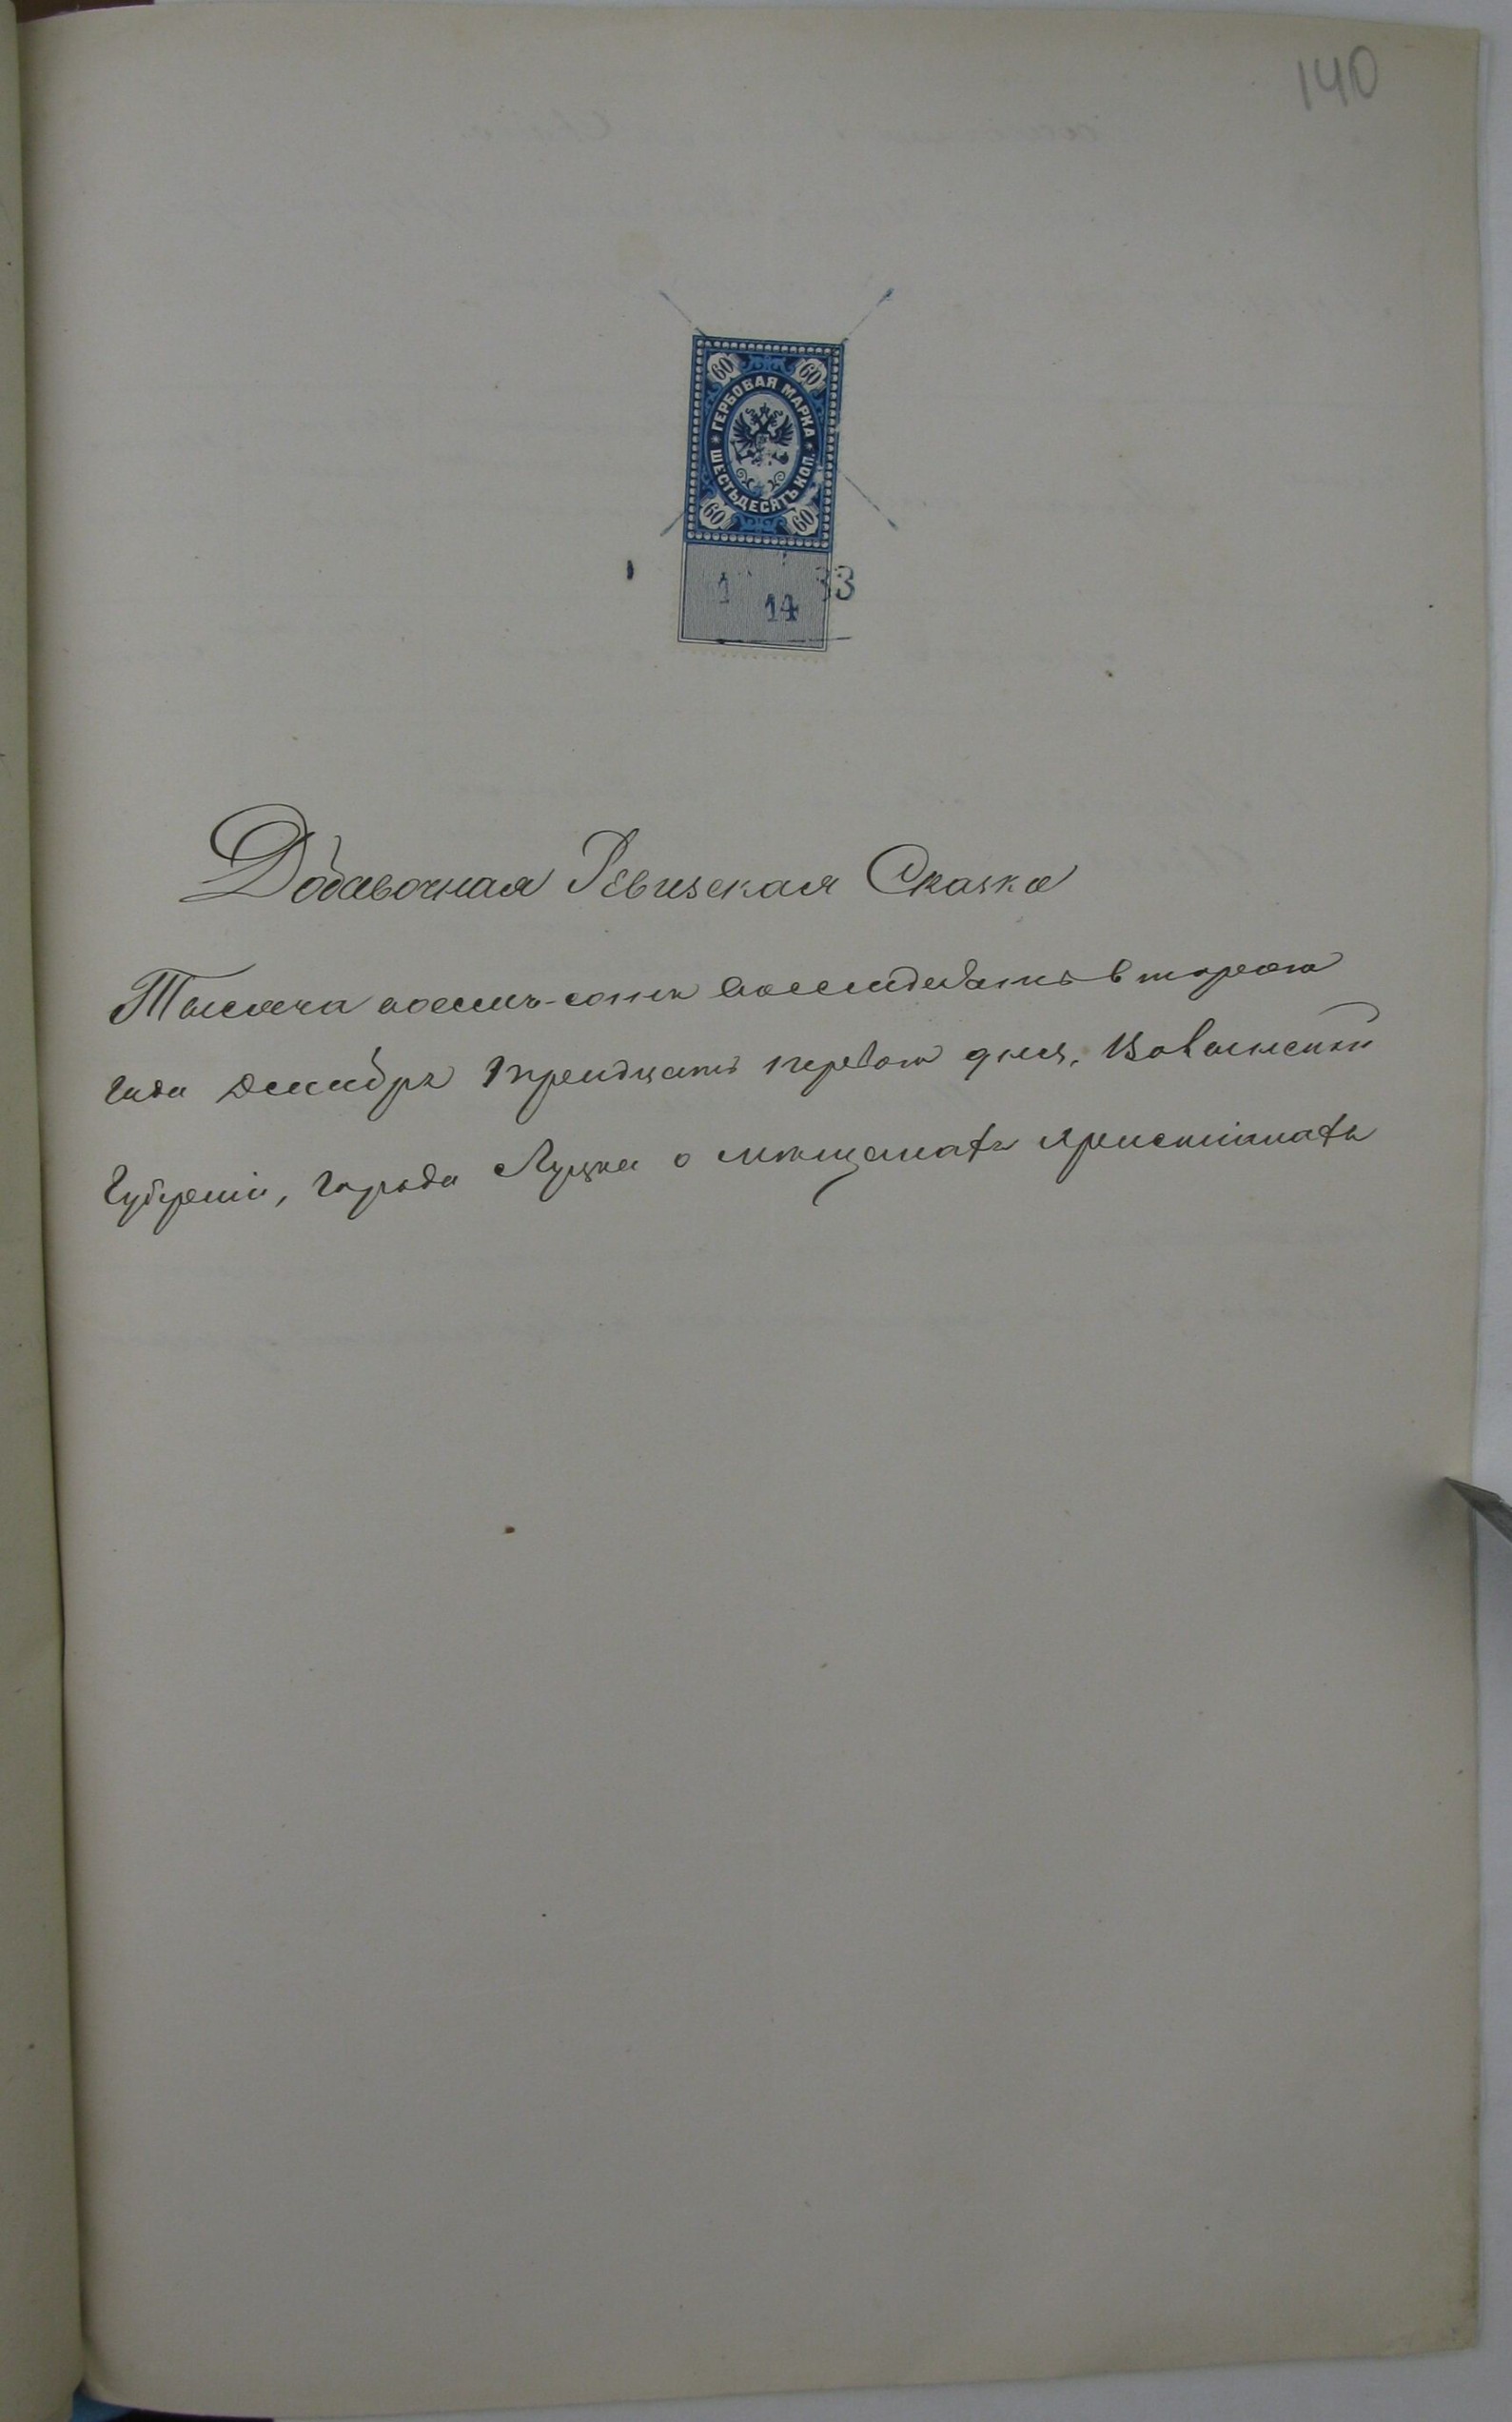 140
60 60
ГЕРБОВАЯ МАРКА
ШЕСТЬДЕСЯТЪ КОП.
60 60
1 33
14
Добавочная Ревизская Сказка
Тысяча восемь-сотъ восемдесятъ втораго
года Декабря тридцать перваго дня, Волынской
Губерніи, города Луцка о мѣщанахъ христіанахъ